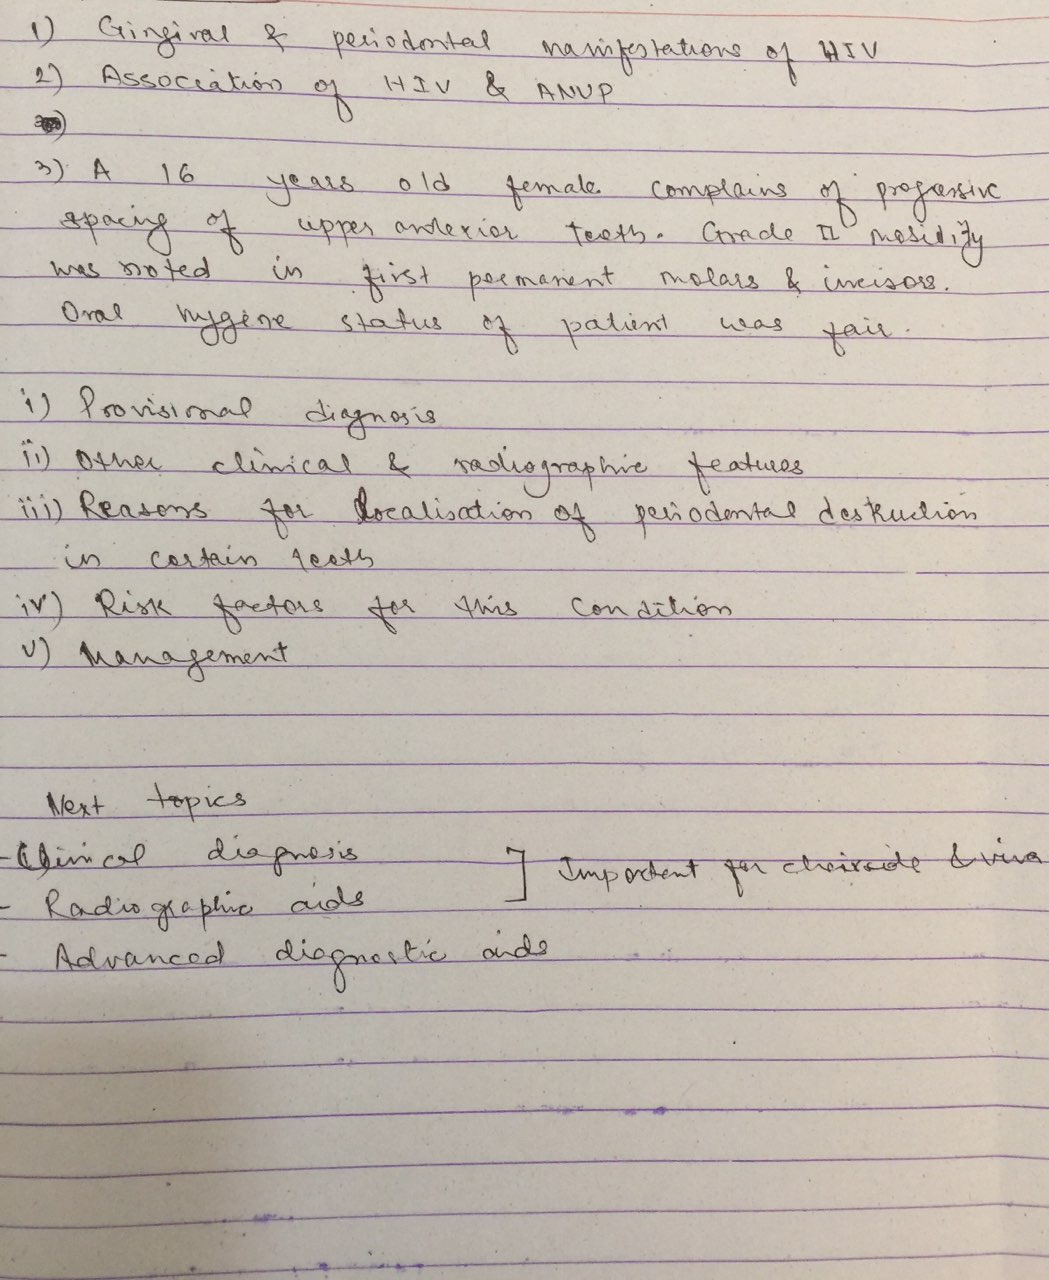 1) Gingival & periodontal manifestations of HIV
2) Association of HIV & ANUP
3) A 16 years old female complains of progressive
spacing of upper anterior teeth. Grade II mobility
was noted in first permanent molars & incisors.
Oral hygene status of patient was fair.
i) Provisional diagnosis
ii) Other clinical & radiographic features
iii) Reasons for localisation of periodontal destruction
in certain teeth
iv) Risk factors for this condition
v) Management
Next topics
- Clinical diagnosis
- Radiographic aids
] Important for chairside & viva
- Advanced diagnostic aids